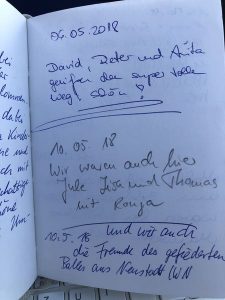 06.05.2018
David, Peter und Anita
genießen den super tollen
Weg! Schön!
10.05.18
Wir waren auch hier
Jule und Thomas
mit Ronja
10.5.18 und wir auch
die Freunde des gefiederten
Balles aus Neustadt/WN
bei
kommen
dabei
Kinder
und
mit